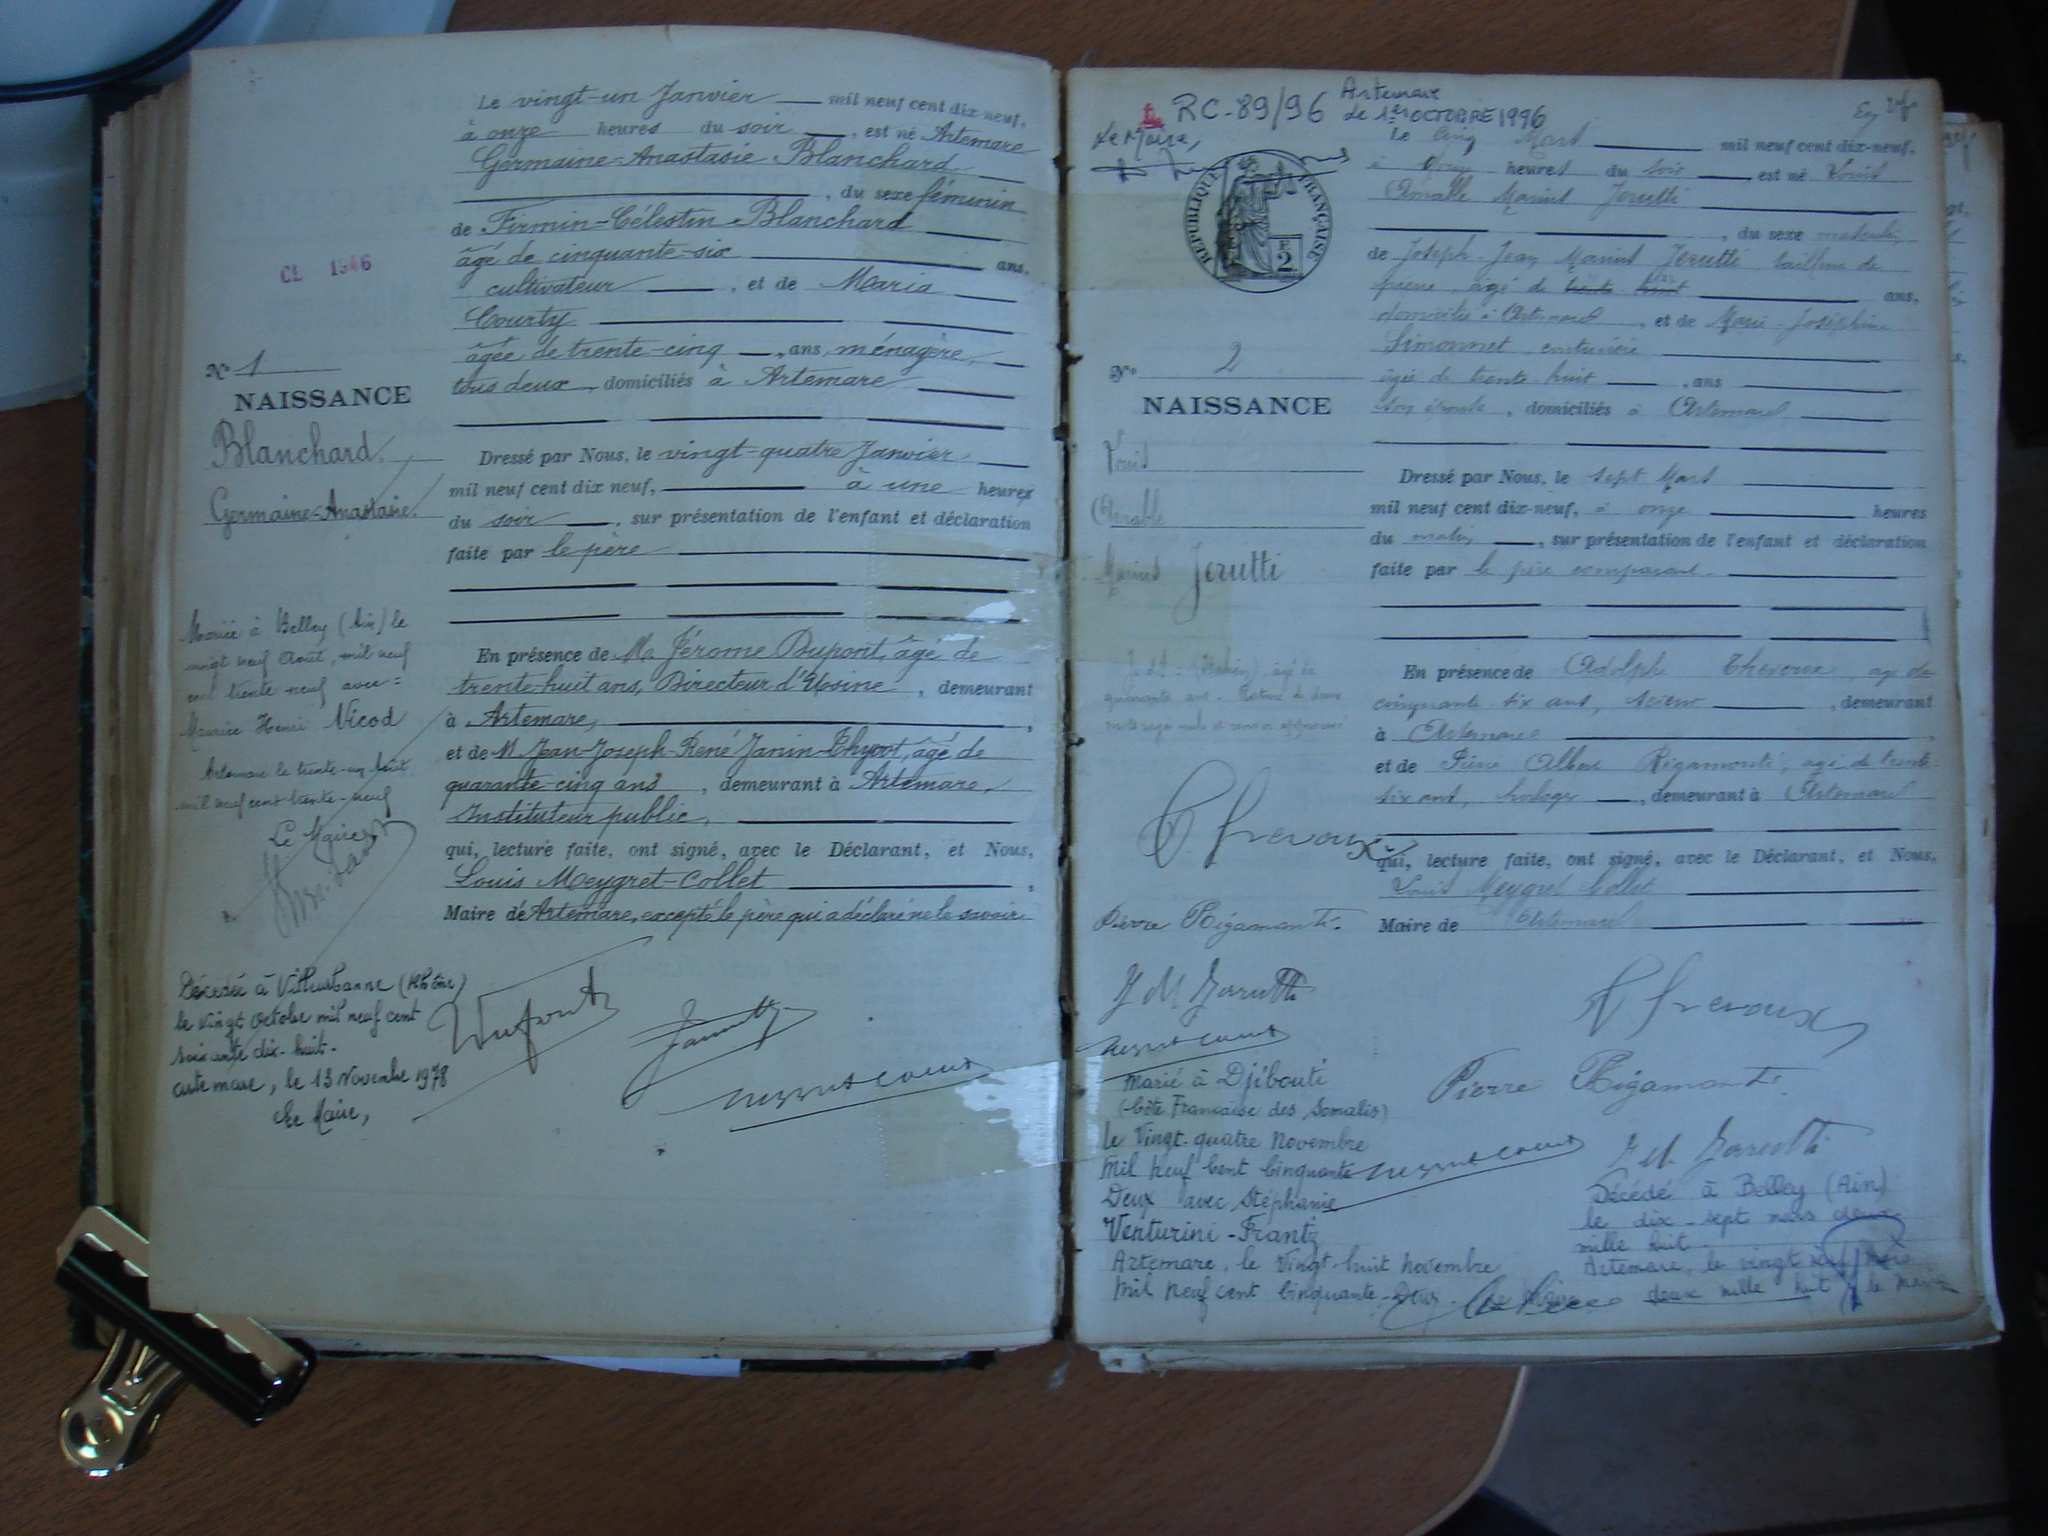 Le vingt-un Janvier mil neuf cent dix-neuf,
à onze heures du soir, est né Artemare
Germaine-Anastasie Blanchard
, du sexe féminin
de Firmin-Célestin Blanchard
âgé de cinquante-six ans,
cultivateur, et de Maria
Courty
âgée de trente-cinq, ans, ménagère,
tous deux, domiciliés à Artemare
CL 1946
No 1
NAISSANCE
Blanchard
Germaine-Anastasie
Dressé par Nous, le vingt-quatre Janvier
mil neuf cent dix neuf, à une heures
du soir, sur présentation de l'enfant et déclaration
faite par le père
En présence de M. Jérome Dupont, âgé de
trente-huit ans, Directeur d'Usine, demeurant
à Artemare,
et de M. Jean-Joseph-René Janin-Thyvot, âgé de
quarante cinq ans, demeurant à Artemare,
Instituteur public,
qui, lecture faite, ont signé, avec le Déclarant, et Nous,
Louis Meygret-Collet,
Maire de Artemare, excepté le père qui a déclaré ne le savoir
Mariée à Belley (Ain) le
vingt neuf Août, mil neuf
cent trente neuf avec =
Maurice Henri Nicod
Artemare le trente-un Août
mil neuf cent trente-neuf
Le Maire
Décédée à Villeurbanne (Rhône)
le vingt octobre mil neuf cent
soixante dix-huit.
Artemare, le 13 Novembre 1978
Le Maire,
RC-89/96 Artemare
le 1er OCTOBRE 1996
Le Maire,
RÉPUBLIQUE FRANÇAISE
2 F
Le cinq Mars mil neuf cent dix-neuf,
à onze heures du soir est né Louis
Amable Marius Jerutti
, du sexe masculin
de Joseph-Jean Marius Jerutti tailleur de
pierre, âgé de ans,
domicilié à Artemare, et de Marie-Joséphine
Simonnet, couturière
âgée de trente-huit, ans
son épouse, domiciliés à Artemare
No 2
NAISSANCE
Louis
Amable
Marius Jerutti
Dressé par Nous, le sept Mars
mil neuf cent dix-neuf, à onze heures
du matin, sur présentation de l'enfant et déclaration
faite par le père comparant
En présence de Adolphe, âgé de
cinquante-six ans, demeurant
à Artemare
et de Pierre Albert Rigamonti, âgé de trente
six ans, horloger, demeurant à Artemare
qui, lecture faite, ont signé, avec le Déclarant, et Nous,
Louis Meygret Collet
Maire de Artemare
Pierre Rigamonti
Pierre Rigamonti
Marié à Djibouti
(Côte Française des Somalis)
le Vingt-quatre Novembre
Mil Neuf Cent Cinquante
Deux avec Stéphanie
Venturini-Frantz
Artemare, le Vingt-huit novembre
Mil neuf cent Cinquante-Deux. Le Maire
Décédé à Belley (Ain)
le dix-sept mars deux
mille huit
Artemare, le vingt mars
deux mille huit le Maire